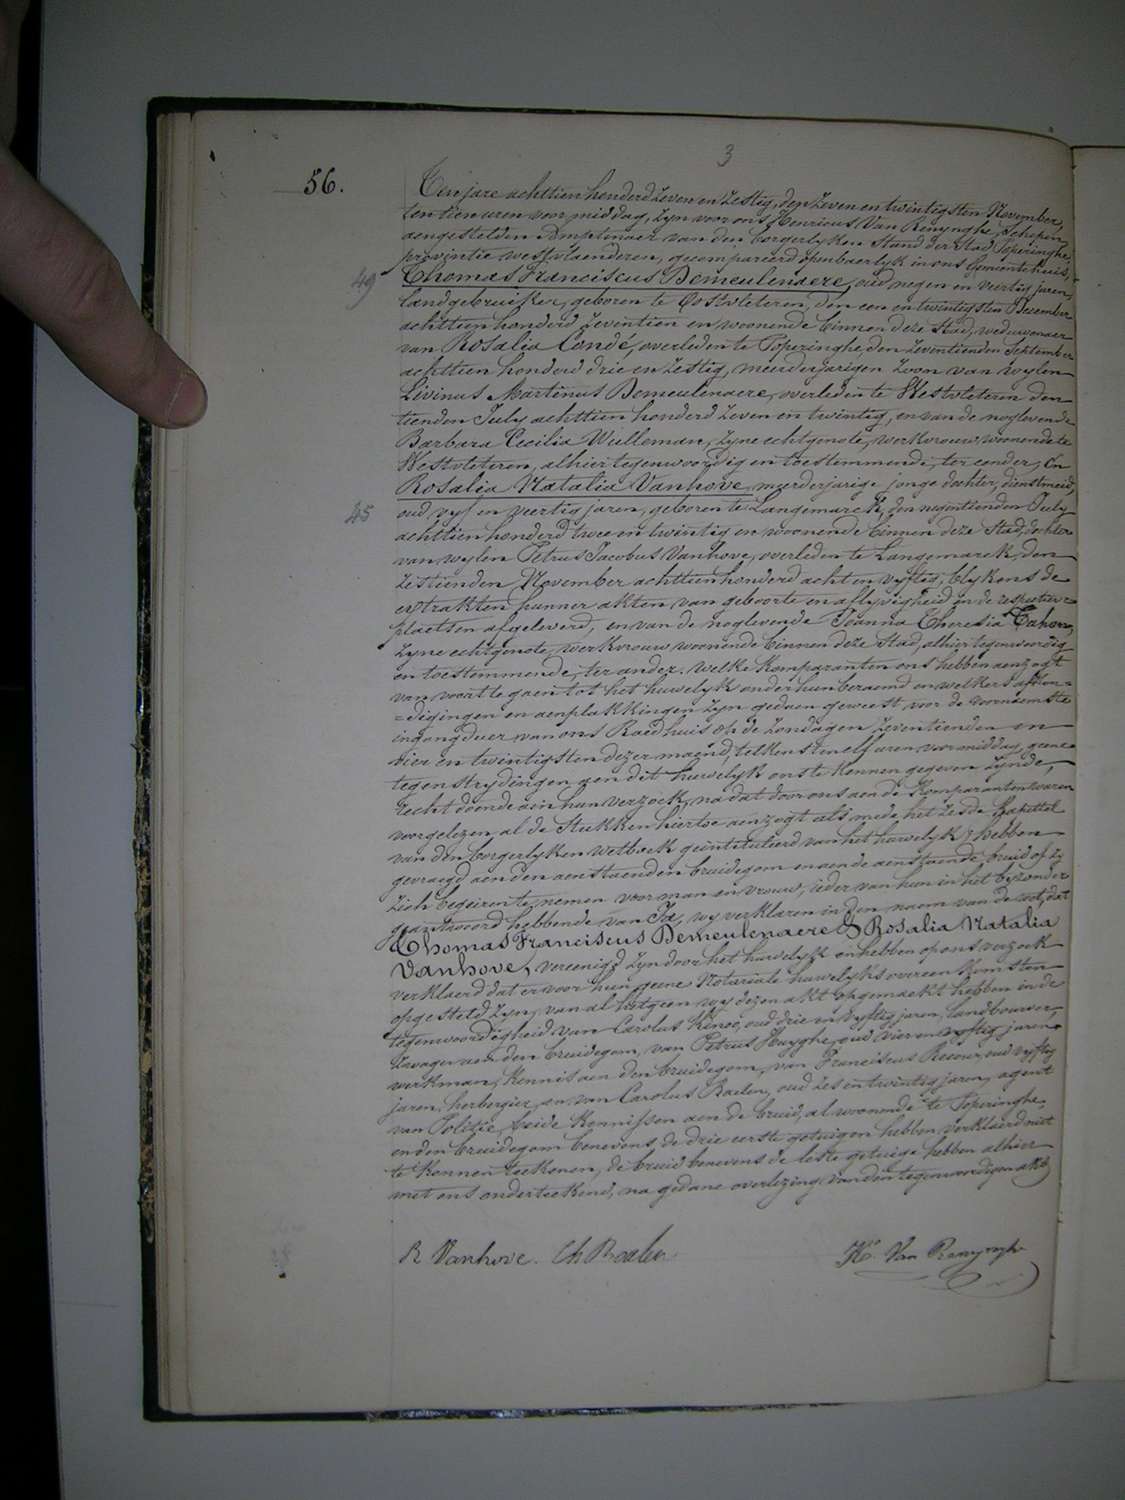 3
56.
Ten jare achttien honderd zeven en zestig, den zeven en twintigsten November,
ten tien uren voor middag, zyn voor ons Henricus Van Renynghe, Schepen,
aengestelden Amptenaer van den borgerlyken Stand der stad Poperinghe,
provintie westvlaenderen, gecompareerd openbaerlyk in ons Gemeentehuis,
49
Thomas Franciscus Demeulenaere, oud negen en veertig jaren,
landgebruiker, geboren te Oostvleteren, den een en twintigsten December
achttien honderd zeventien en woonende binnen deze Stad, weduwenaer
van Rosalia Condé, overleden te Poperinghe, den zeventienden September
achttien honderd drie en zestig, meerderjarigen zoon van wylen
Livinus Martinus Demeulenaere, overleden te Westvleteren den
tienden July achttien honderd zeven en twintig, en van de noglevende
Barbara Cecilia Wulleman, zyne echtgenote, werkvrouw woonende te
Westvleteren, alhier tegenwoordig en toestemmende, ter eender, En
Rosalia Natalia Vanhove, meerderjarige jonge dochter, dienstmeid,
45
oud vyf en veertig jaren, geboren te Langemarck, den negentienden July
achttien honderd twee en twintig en woonende binnen deze Stad, dochter
van wylen Petrus Jacobus Vanhove, overleden te Langemarck, den
zestienden November achttien honderd acht en vyftig, blykens de
extrakten hunner akten van geboorte en aflyvigheid in de respective
plaetsen afgeleverd, en van de noglevende Joanna Theresia Cahon,
zyne echtgenote, werkvrouw woonende binnen deze Stad, alhier tegenwoordig
en toestemmende, ter ander. Welke komparanten ons hebben aenzogt
van voort te gaen tot het huwelyk onder hun beraemd en welkers afkon=
=digingen en aenplakkingen zyn gedaen geweest voor de voornaemste
ingangdeur van ons Raedhuis op de zondagen zeventienden en
vier en twintigsten dezer maend, telkens ten elf uren voormiddag, geene
tegenstrydingen aen dit huwelyk ons te kennen gegeven zynde,
recht doende aen hun verzoek, na dat door ons aen de komparanten waren
voorgelezen al de stukken hiertoe aenzogt als mede het zesde kapittel
van den borgerlyken wetboek geintituleerd van het huwelyk, hebben
gevraegd aen den aenstaenden bruidegom en aen de aenstaende bruid of zy
zich begeiren te nemen voor man en vrouw, ieder van hun in het byzonder
geantwoord hebbende van Ja, wy verklaren in den naem van de wet, dat
Thomas Franciscus Demeulenaere & Rosalia Natalia
Vanhove, vereenigd zyn door het huwelyk en hebben op ons verzoek
verklaerd dat er voor hun geene Notariale huwelyksovereenkomsten
opgesteld zyn, van al hetgeen wy dezen akt opgemaekt hebben in de
tegenwoordigheid van Carolus Kinoo, oud drie en vyftig jaren, landbouwer,
zwager aen den bruidegom, van Petrus Huyghe, oud vier en vyftig jaren
werkman, kennis aen den bruidegom, van Franciscus oud vyftig
jaren, herbergier, en van Carolus Baelen, oud zes en twintig jaren, agent
van Politie, beide kennissen aen de bruid, al woonende te Poperinghe,
en den bruidegom benevens de drie eerste getuigen hebben verklaerd niet
te kennen teekenen, de bruid benevens de leste getuige hebben alhier
met ons onderteekend, na gedane overlezing van den tegenwoordigen akt.
R Vanhove. Ch Baelen Hri. Van Renynghe